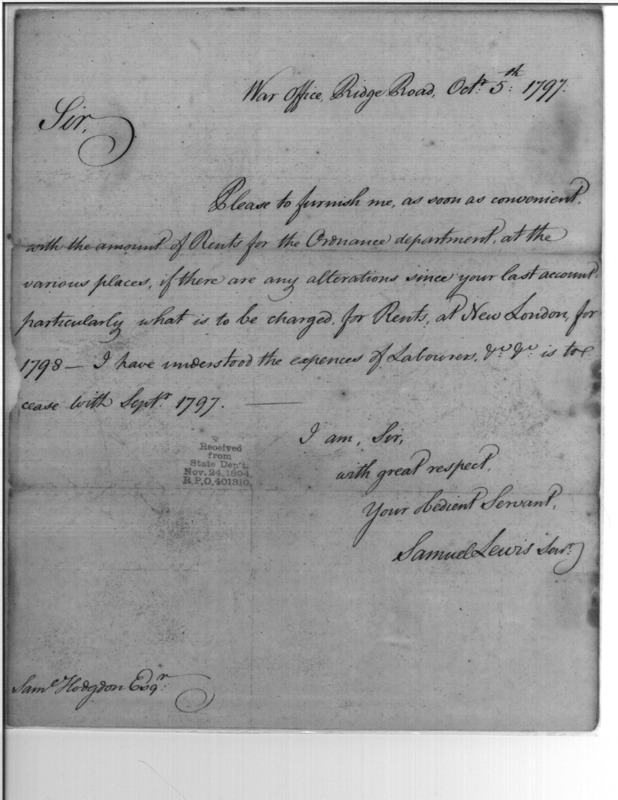 War Office, Ridge Road, Octr. 5th: 1797.
Sir,
Please to furnish me, as soon as convenient,
with the amount of Rents for the Ordnance department, at the
various places, if there are any alterations since your last account
particularly what is to be charged, for Rents, at New London, for
1798 — I have understood the expences of Labourers, &c. &c. is to
cease with Septr. 1797. —
I am, Sir,
with great respect,
Your Obedient Servant,
Samuel Lewis Senr.
Received
from
State Dep't,
Nov. 24, 1894,
R.P.O. 401310.
Saml. Hodgdon Esqr.